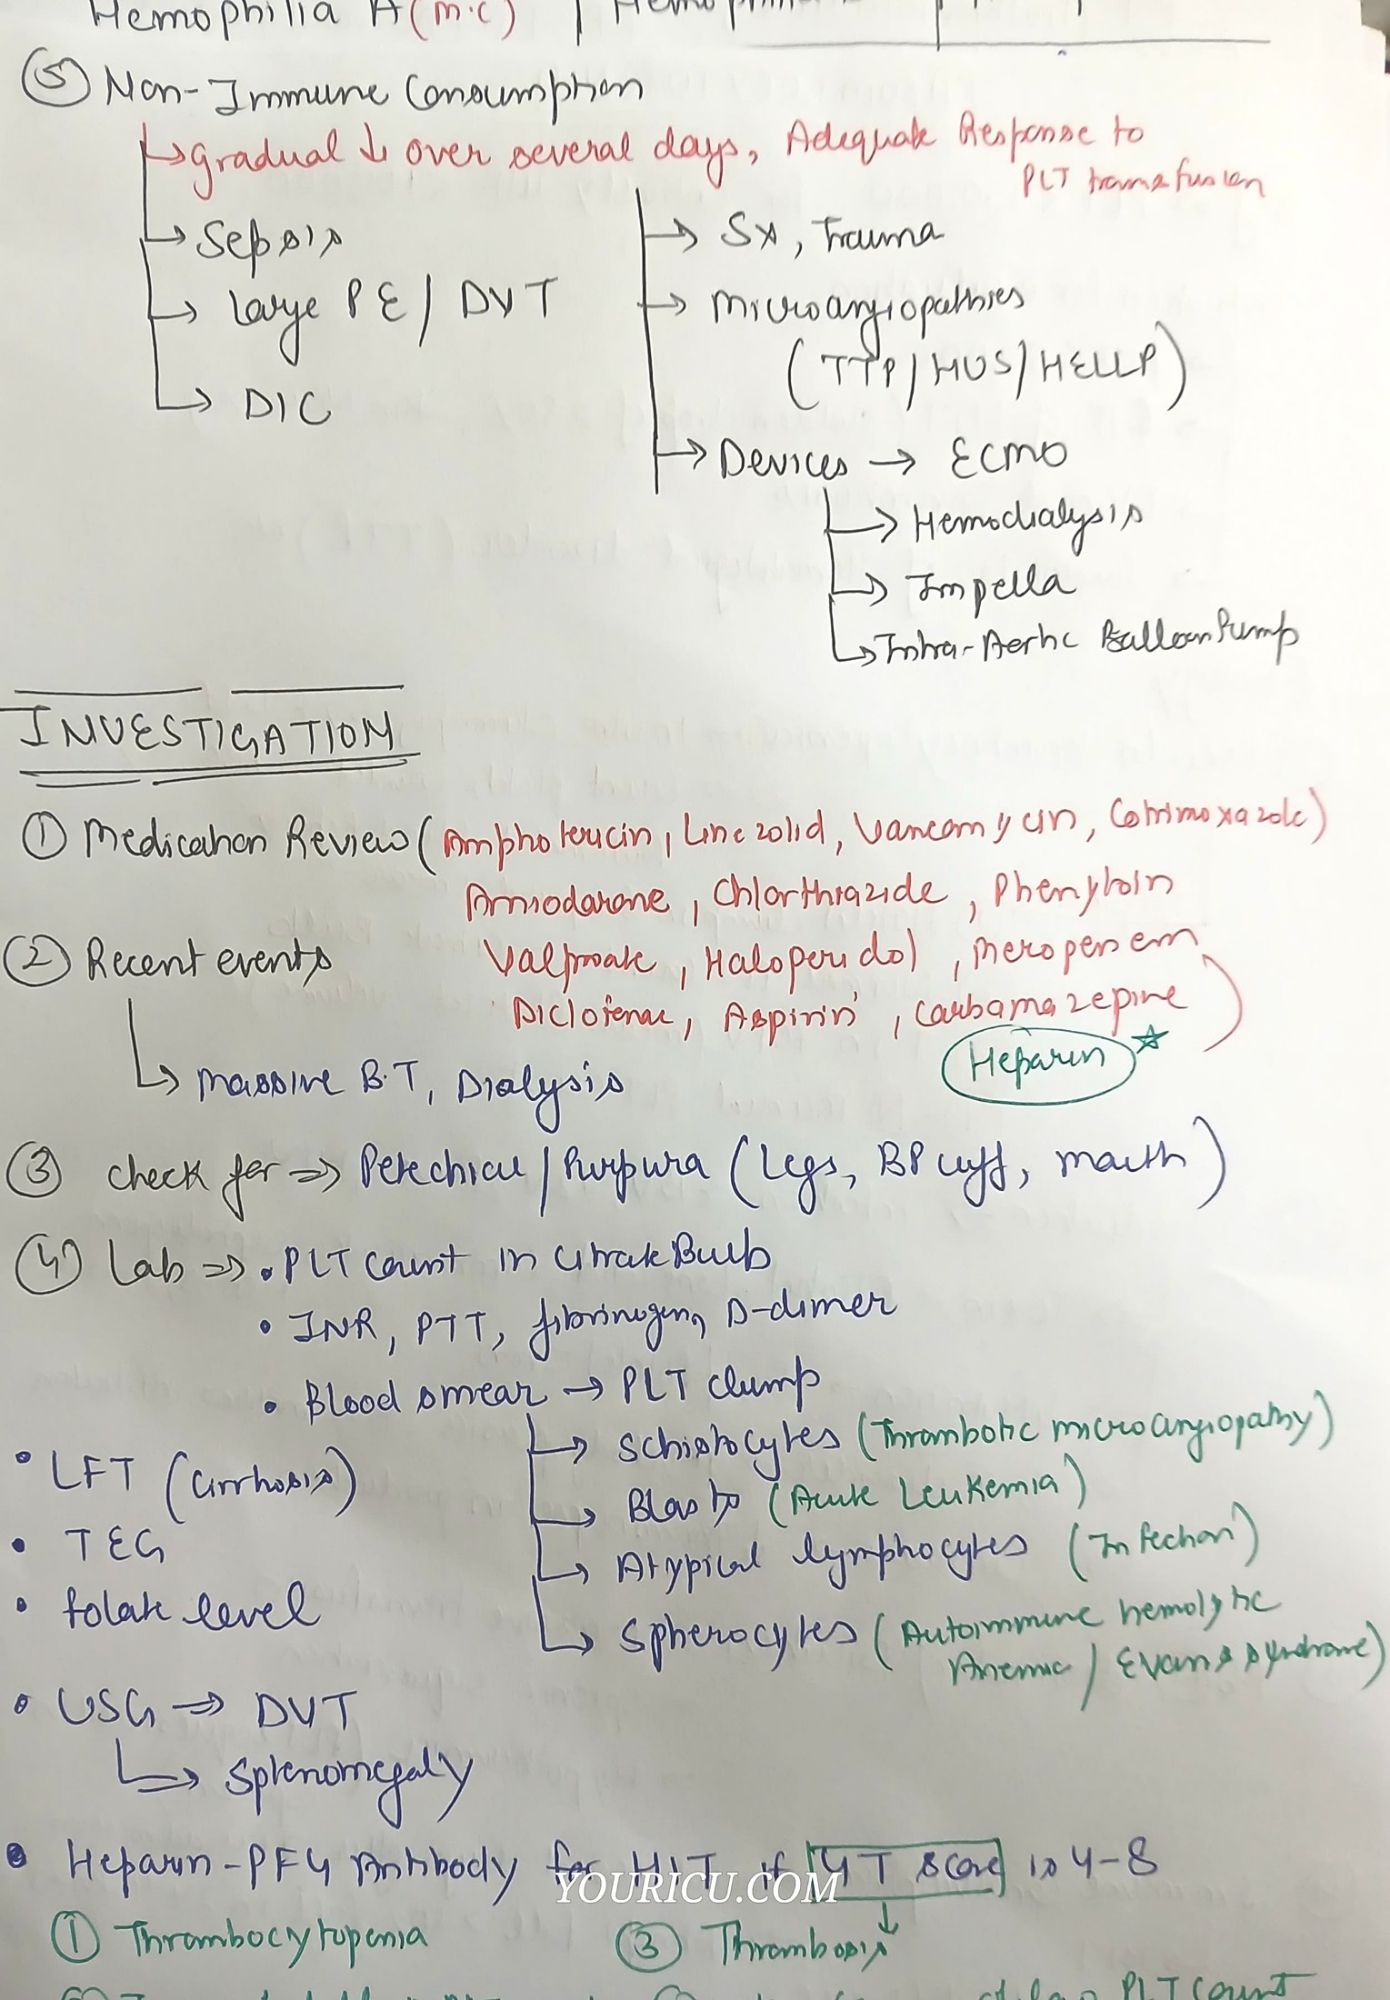 Hemophilia A (m.c)
⑤ Non-Immune Consumption
→ gradual ↓ over several days, Adequate Response to PLT transfusion
→ Sepsis
→ Large PE / DVT
→ DIC
→ Sx, Trauma
→ Microangiopathies
(TTP/HUS/HELLP)
→ Devices → ECMO
→ Hemodialysis
→ Impella
→ Intra-Aortic Balloon Pump
INVESTIGATION
① Medication Review (Amphotericin, Linezolid, Vancomycin, Cotrimoxazole
Amiodarone, Chlorthiazide, Phenytoin
Valproate, Haloperidol, Meropenem
Diclofenac, Aspirin, Carbamazepine)
Heparin ☆
② Recent events
→ Massive B.T, Dialysis
③ Check for ⇒ Petechiae / Purpura (Legs, BP cuff, mouth)
④ Lab ⇒ • PLT Count in Citrate Bulb
• INR, PTT, fibrinogen, D-dimer
• Blood smear → PLT clump
→ Schistocytes (Thrombotic microangiopathy)
→ Blasts (Acute Leukemia)
→ Atypical lymphocytes (Infection)
→ Spherocytes (Autoimmune hemolytic
Anemia / Evans syndrome)
• LFT (Cirrhosis)
• TEG
• folate level
• USG ⇒ DVT
→ Splenomegaly
• Heparin-PF4 Antibody for HIT if 4T score is 4-8
YOURICU.COM
① Thrombocytopenia
③ Thrombosis
PLT Count